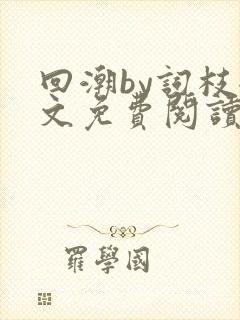 回潮by詞枝
文免費閱讀
羅學國